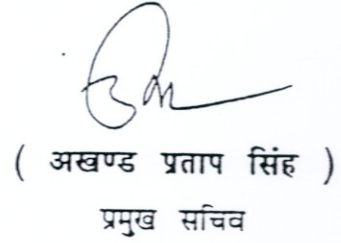 ( अखण्ड प्रताप सिंह )
प्रमुख सचिव